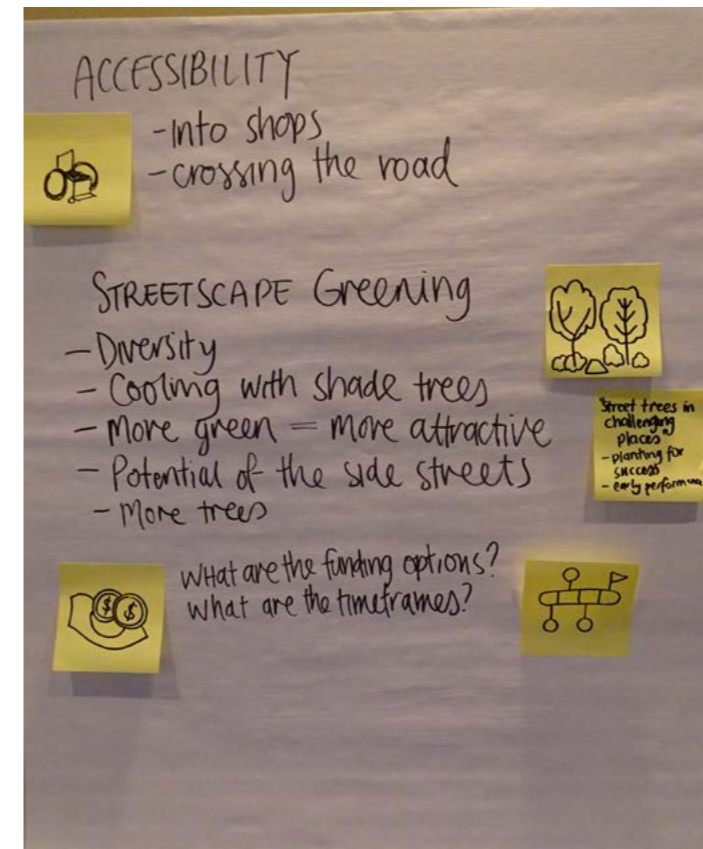 ACCESSIBILITY
- Into shops
- crossing the road
STREETSCAPE Greening
- Diversity
- Cooling with shade trees
- More green = more attractive
- Potential of the side streets
- More trees
Street trees in
challenging
places
- planting for
success
- early
What are the funding options?
What are the timeframes?
$ $